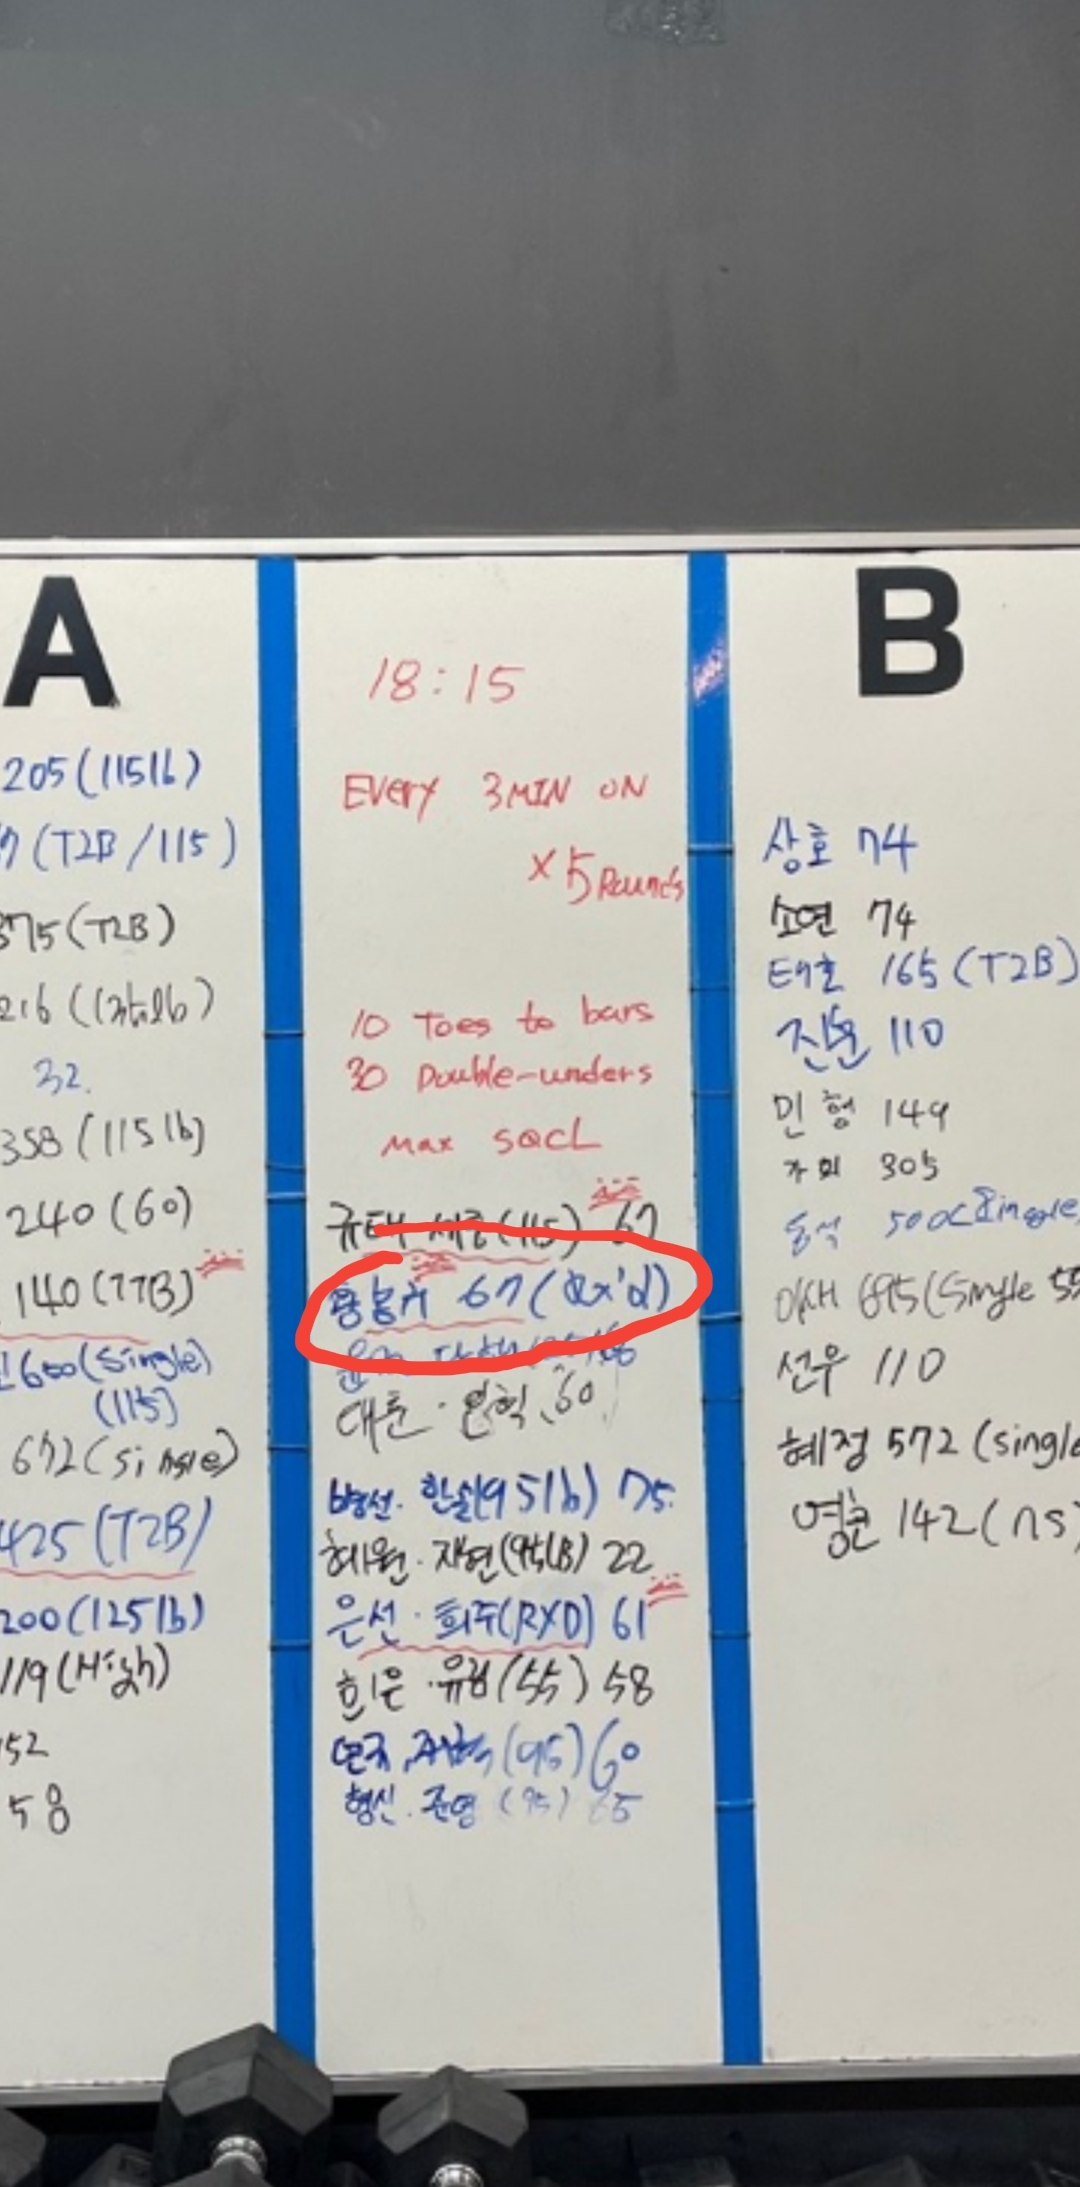 A
205 (115lb)
(T2B/115)
375 (T2B)
216
32.
358 (115lb)
240 (60)
140 (TTB)
600 (single)
(115)
672 (single)
425 (T2B)
200 (125lb)
119
52
58
18:15
Every 3MIN ON
x 5 Rounds
10 Toes to bars
30 Double-unders
Max SQCL
규태 세중 (115) 67
67 (Rx'd)
대훈 · 인혁 60
병선. 한솔 (95lb) 75
혜원 · 재현 (95LB) 22
은선 · 희주 (RXD) 61
희은 · 유림 (55) 58
(95) 60
형신 . 준영 (95) 65
B
상호 74
소연 74
태호 165 (T2B)
진훈 110
민형 149
가희 305
동석 500 (Single)
695 (Single 55
선우 110
혜정 572 (single
영훈 142 (ns)